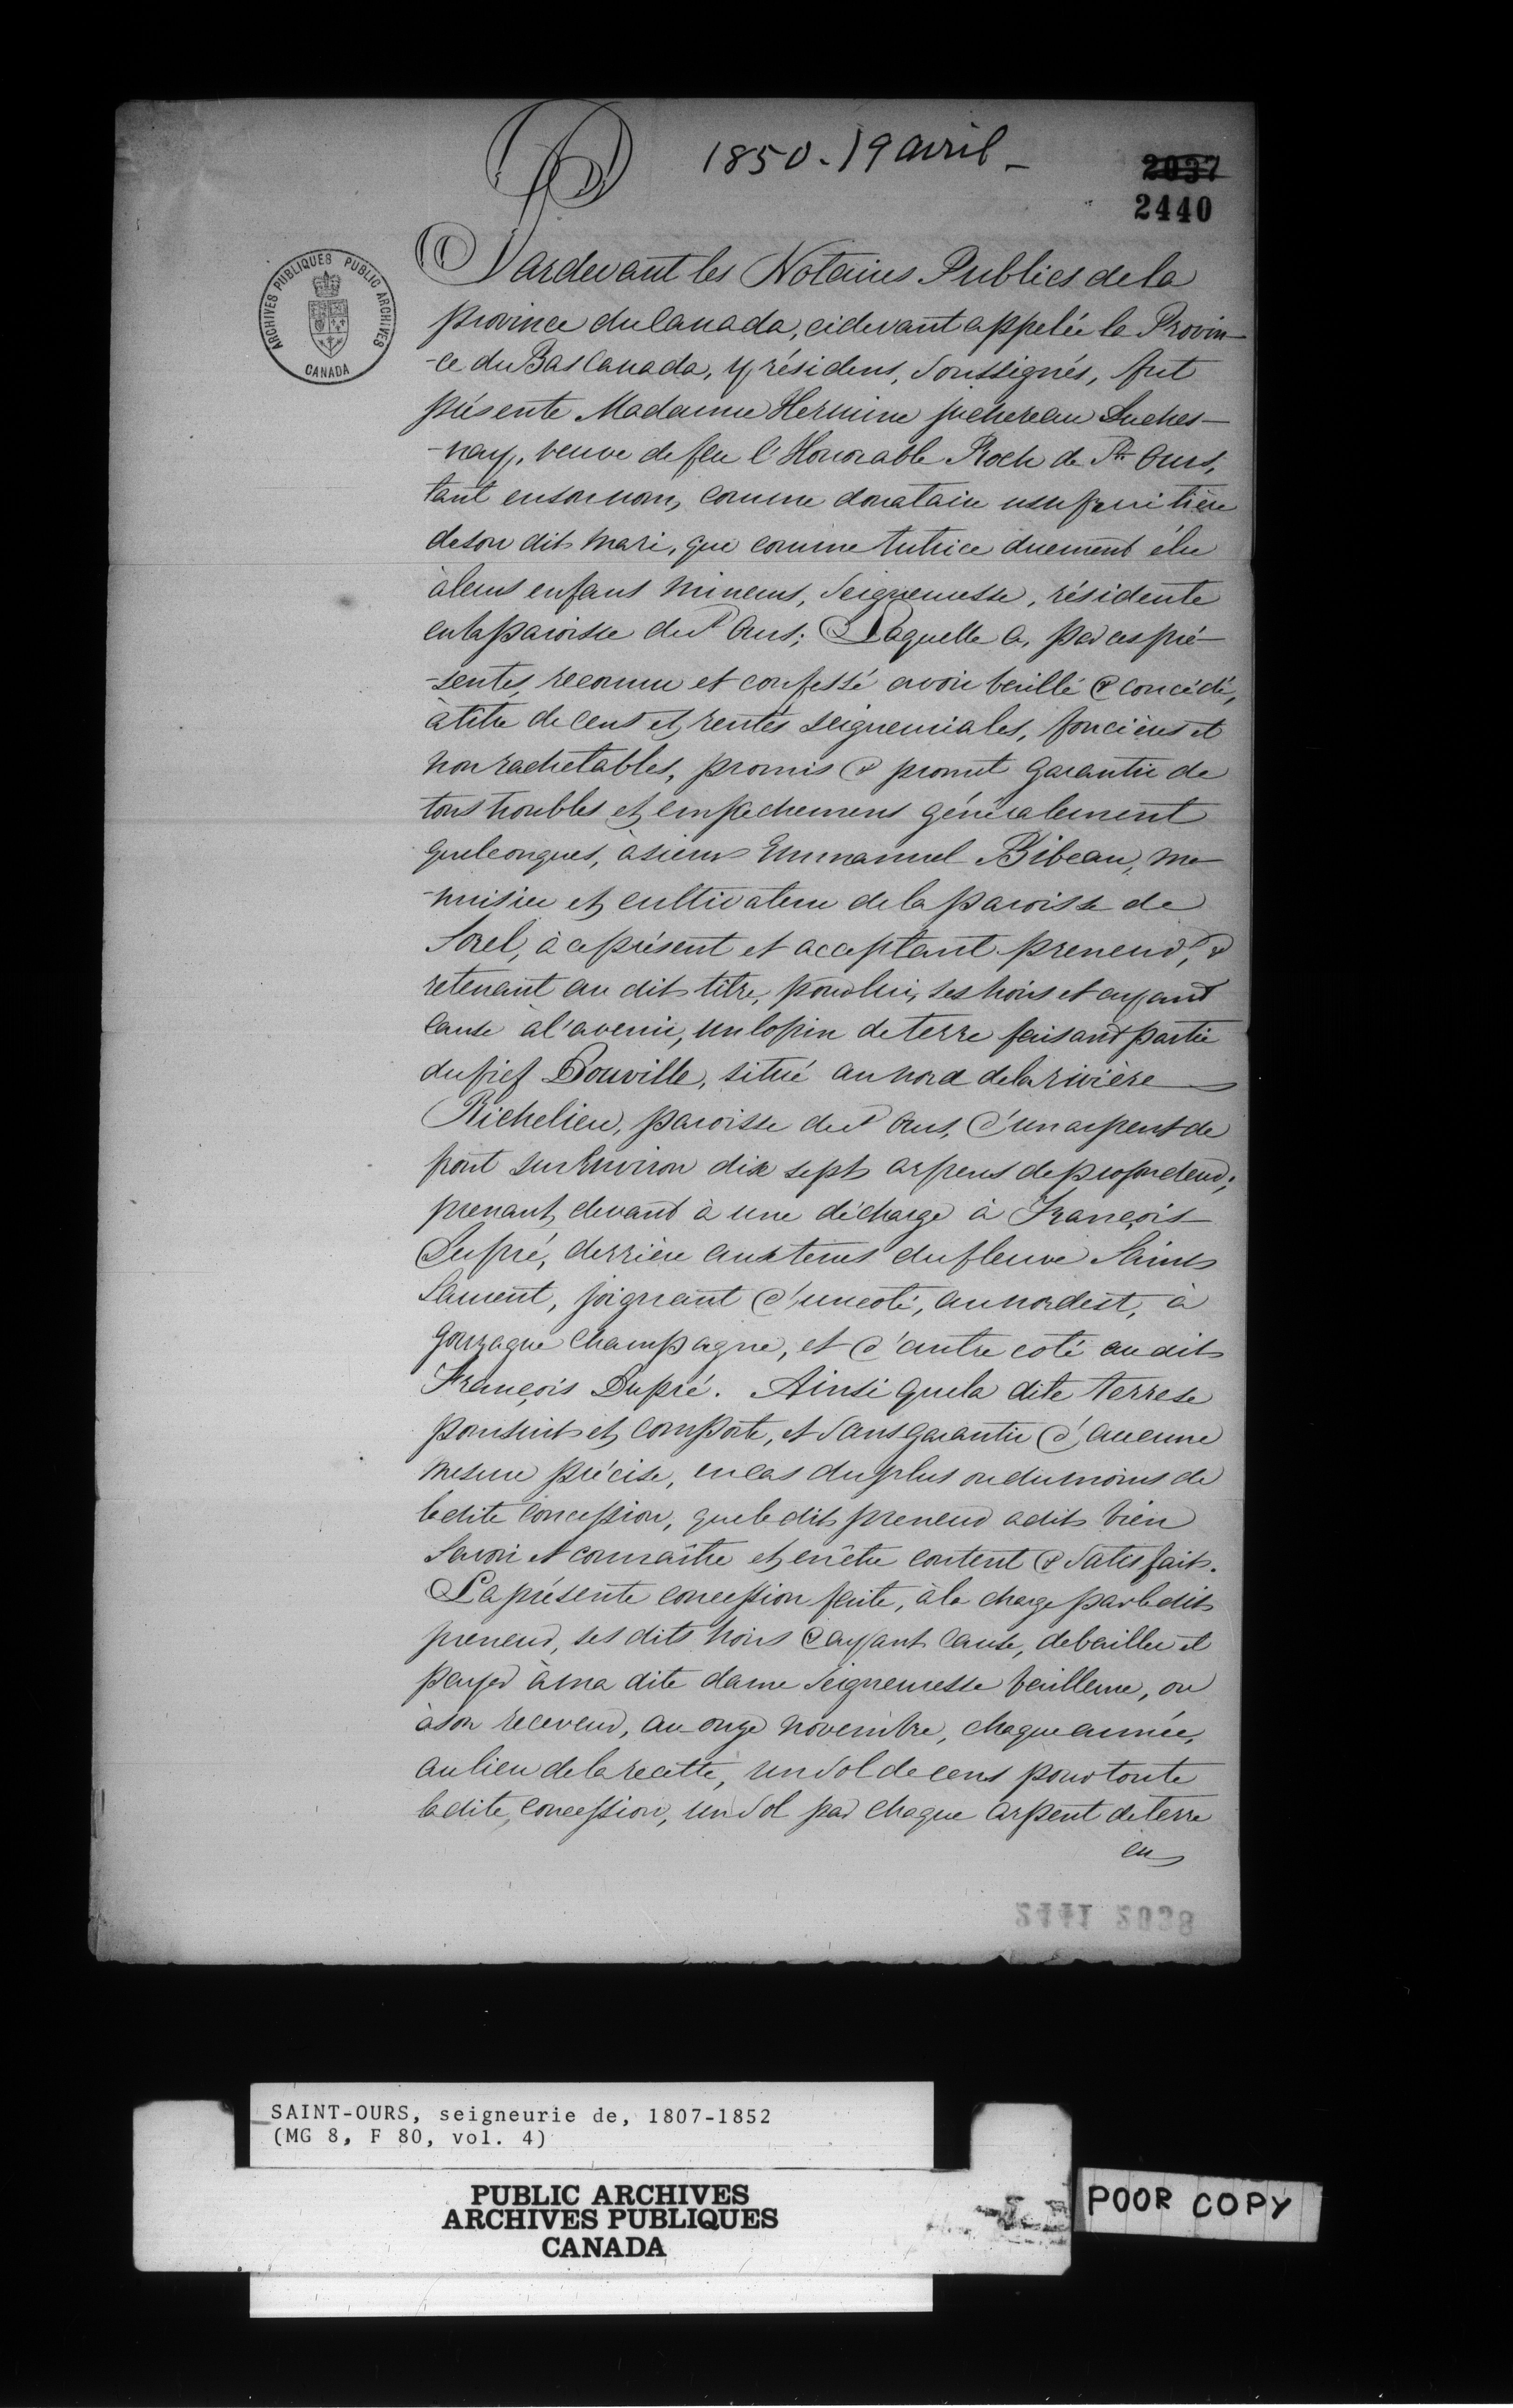 1850. 19 avril _
2037
2440
ARCHIVES PUBLIQUES PUBLIC ARCHIVES
CANADA
Pardevant les Notaires Publics de la
province du Canada, cidevant appelée la Provin-
-ce du Bas Canada, y résidens, soussignés, fut
présente Madame Hermine Juchereau Duches-
-nay, veuve de feu l'Honorable Roch de St Ours,
tant en son nom, comme donataire usufruitière
de son dit mari, que comme tutrice duement élue
à leurs enfans mineurs, Seigneuresse, résidente
en la paroisse de St Ours; Laquelle a, par ces pré-
-sentes, reconnu et confessé avoir baillé & concédé,
à titre de cens et rentes seigneuriales, foncières et
non rachetables, promis & promet garantir de
tous troubles et empêchemens généralement
quelconques, à sieur Emmanuel Bibeau, me-
-nuisier et cultivateur de la paroisse de
Sorel, à ce présent et acceptant preneur, &
retenant au dit titre, pour lui, ses hoirs et ayant
cause à l'avenir, un lopin de terre faisant partie
du fief Douville, situé au nord de la rivière
Richelieu, paroisse de St Ours, d'un arpent de
front sur environ dix sept arpens de profondeur;
prenant devant à une décharge à François
Dupré, derrière aux terres du fleuve Saint
Laurent, joignant d'un coté, au nordest, à
Gonzague Champagne, et d'autre coté au dit
François Dupré. Ainsi que la dite terre se
poursuit et comporte, et sans garantie d'aucune
mesure précise, en cas du plus ou du moins de
la dite concession, que le dit preneur a dit bien
savoir et connaître et en être content & satisfait.
La présente concession faite, à la charge par le dit
preneur, ses dits hoirs & ayant cause, de bailler et
payer à ma dite dame Seigneuresse bailleure, ou
à son receveur, au onze novembre, chaque année,
au lieu de la recette, un sol de cens pour toute
la dite concession, un sol par chaque arpent de terre
en
2441 2038
SAINT-OURS, seigneurie de, 1807-1852
(MG 8, F 80, vol. 4)
PUBLIC ARCHIVES
ARCHIVES PUBLIQUES
CANADA
POOR COPY